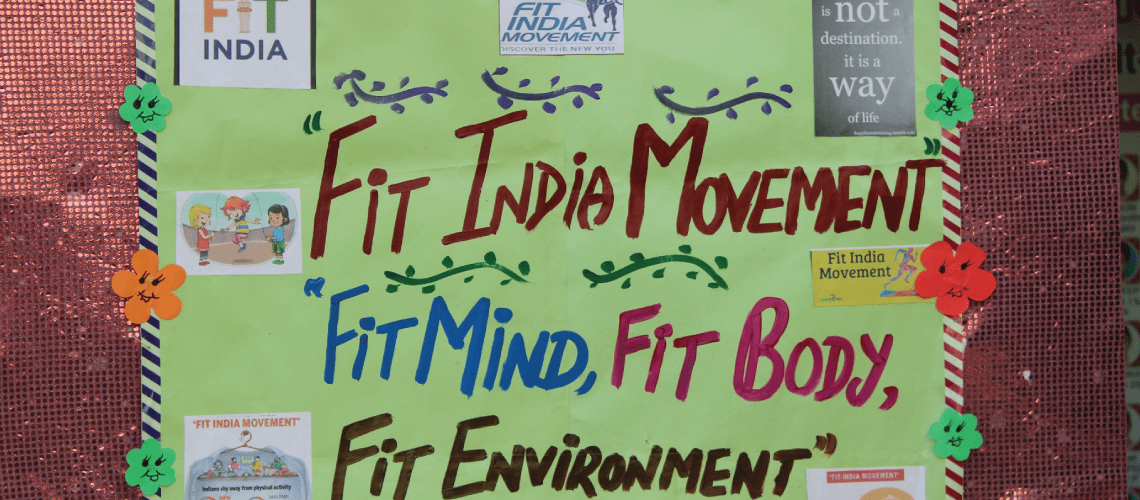 FIT
INDIA
FIT
INDIA
MOVEMENT
DISCOVER THE NEW YOU
is not a
destination.
it is a
way
of life
"FIT INDIA MOVEMENT"
Fit India
Movement
"FIT MIND, FIT BODY,
FIT ENVIRONMENT"
'FIT INDIA MOVEMENT'
Indians shy away from physical activity
"FIT INDIA MOVEMENT"